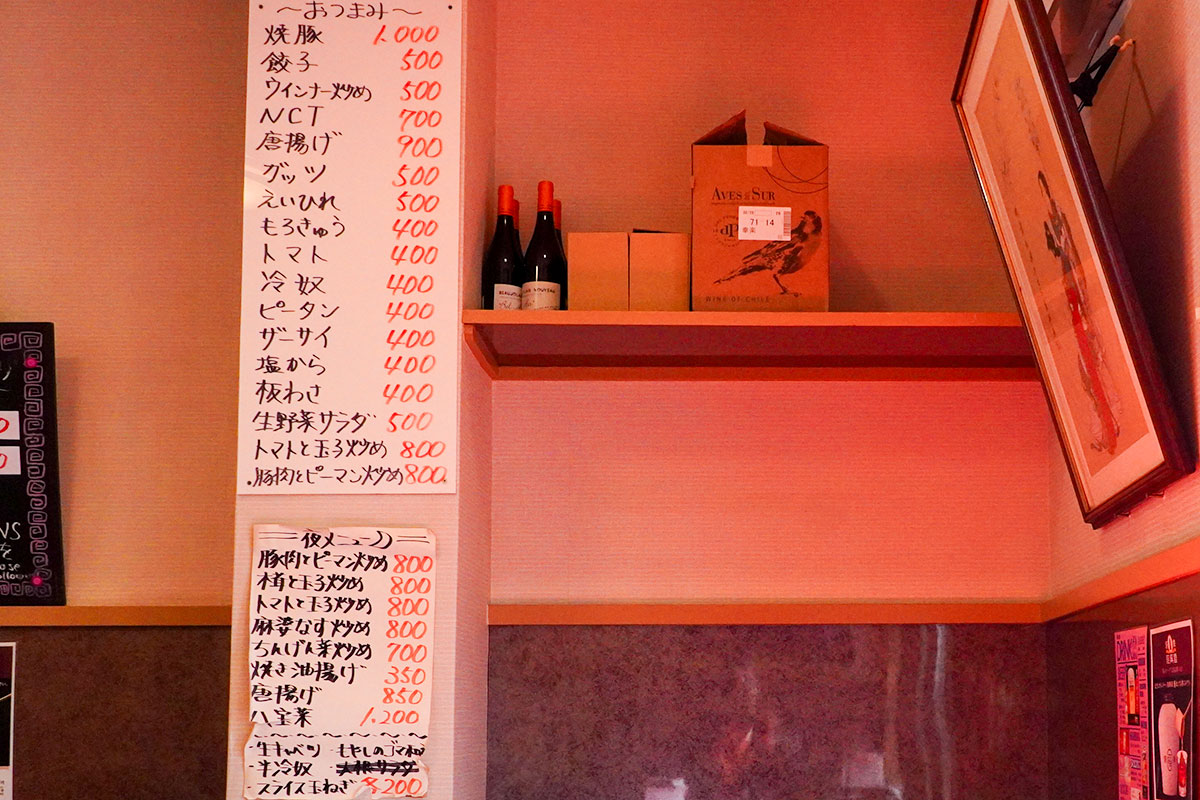 ～おつまみ～
焼豚 1,000
餃子 500
ウインナー炒め 500
NCT 700
唐揚げ 900
ガッツ 500
えいひれ 500
もろきゅう 400
トマト 400
冷奴 400
ピータン 400
ザーサイ 400
塩から 400
板わさ 400
生野菜サラダ 500
トマトと玉子炒め 800
豚肉とピーマン炒め 800
夜メニュー
豚肉とピーマン炒め 800
木茸と玉子炒め 800
トマトと玉子炒め 800
麻婆なす炒め 800
ちんげん菜炒め 700
焼き油揚げ 350
唐揚げ 850
八宝菜 1,200
・生キャベツ ・もやしのゴマ和
・半冷奴 大根サラダ
・スライス玉ねぎ 各200
AVES DEL SUR
71 14
WINE OF CHILE